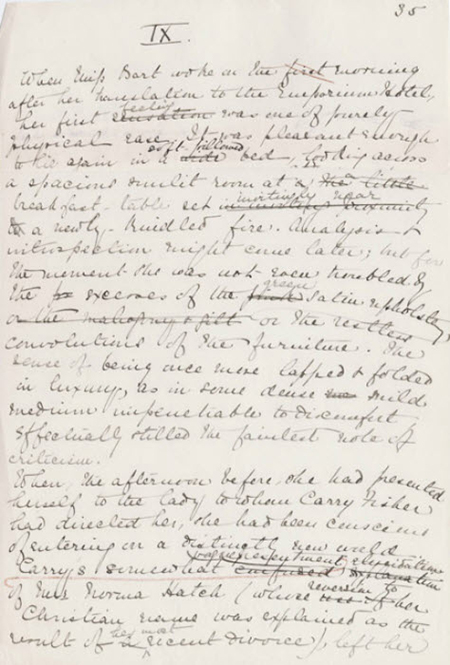 35
IX.
When Miss Bart woke on the first morning
after her translation to the Emporium Hotel,
her first sensation feeling was one of purely
physical ease. It was pleasant enough
to lie again in a soft pillowed bed, looking across
a spacious sunlit room at a the little
breakfast-table set invitingly near
to a newly-kindled fire. Analysis &
introspection might come later; but for
the moment she was not even troubled by
the excesses of the green satin upholstery
or the mahogany & gilt or the restless
convolutions of the furniture. The
sense of being once more lapped & folded
in luxury, as in some dense mild
medium impenetrable to discomfort
effectually stilled the faintest note of
criticism.
When, the afternoon before, she had presented
herself to the lady to whom Carry Fisher
had directed her, she had been conscious
of entering on a distinctly new world
Carry's somewhat confused elucidation explanation
of Mrs Norma Hatch (whose reversion to her
Christian name was explained as the
result of her most recent divorce), left her